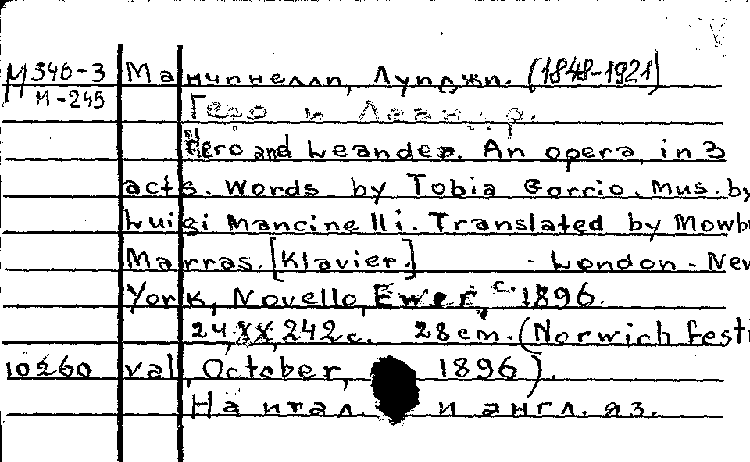 М 346-3 Манчинелли, Луиджи. (1848-1921)
М-245
Геро и Леандр.
Hero and Leander. An opera in 3
acts. Words by Tobia Gorrio. Mus. by
Luigi Mancinelli. Translated by Mowb
Marras. [Klavier.] - London - New
York, Novello, Ewer, c. 1896.
24, XX, 242 c. 28 cm. (Norwich festi
10260 val, October, 1896).
На итал. и англ. яз.